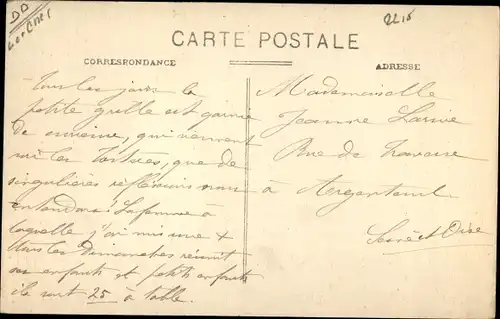 CARTE POSTALE
CORRESPONDANCE
ADRESSE
Tous les jours la
petite grille est garnie
de curieux, qui viennent
voir les Tortues, que de
singulières réflexions nous
entendons! La femme à
laquelle j'ai mis une x
tous les dimanches réunit
ses enfants et petits enfants
ils sont 25 à table.
Mademoiselle
Jeanne
Rue de
à Argenteuil
Seine et Oise